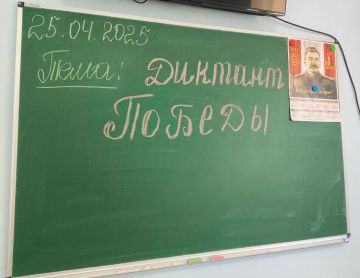 25.04.2025
Тема: Диктант
Победы